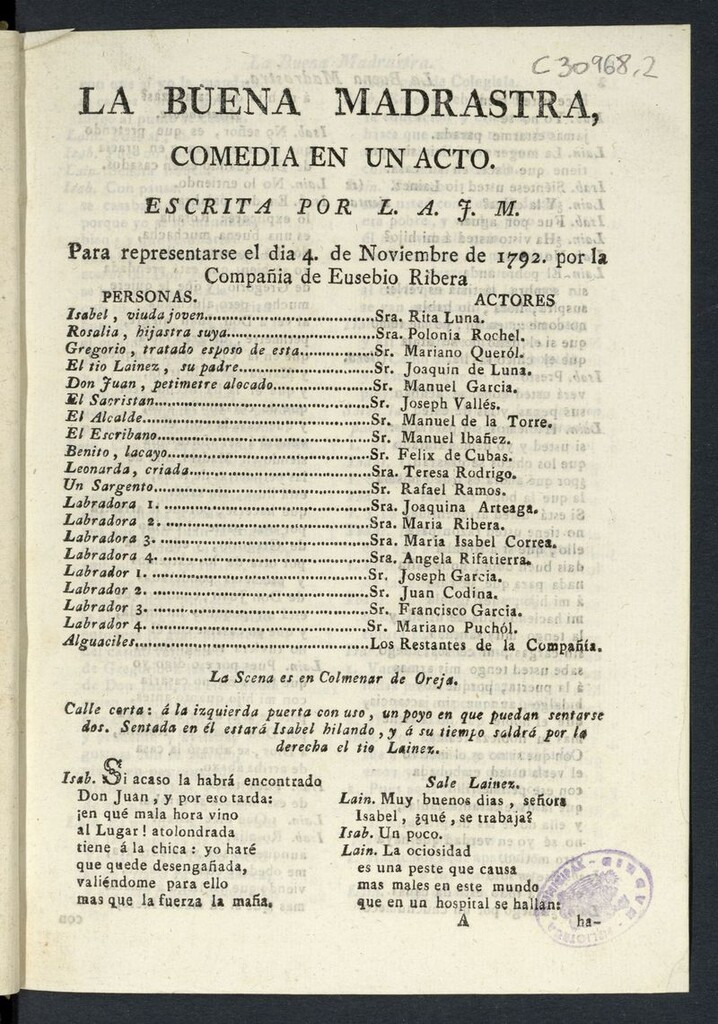 C 30968,2
LA BUENA MADRASTRA,
COMEDIA EN UN ACTO.
ESCRITA POR L. A. J. M.
Para representarse el dia 4. de Noviembre de 1792. por la
Compañia de Eusebio Ribera
PERSONAS. ACTORES
Isabel, viuda joven..................................Sra. Rita Luna.
Rosalia, hijastra suya..............................Sra. Polonia Rochel.
Gregorio, tratado esposo de esta..............Sr. Mariano Queról.
El tio Lainez, su padre.........................Sr. Joaquin de Luna.
Don Juan, petimetre alocado...................Sr. Manuel Garcia.
El Sacristan........................................Sr. Joseph Vallés.
El Alcalde..........................................Sr. Manuel de la Torre.
El Escribano.......................................Sr. Manuel Ibañez.
Benito, lacayo.....................................Sr. Felix de Cubas.
Leonarda, criada.................................Sra. Teresa Rodrigo.
Un Sargento........................................Sr. Rafael Ramos.
Labradora 1. ......................................Sra. Joaquina Arteaga.
Labradora 2. ......................................Sra. Maria Ribera.
Labradora 3. ......................................Sra. Maria Isabel Correa.
Labradora 4. ......................................Sra. Angela Rifatierra.
Labrador 1. .......................................Sr. Joseph Garcia.
Labrador 2. .......................................Sr. Juan Codina.
Labrador 3. .......................................Sr. Francisco Garcia.
Labrador 4. .......................................Sr. Mariano Puchól.
Alguaciles..........................................Los Restantes de la Compañía.
La Scena es en Colmenar de Oreja.
Calle corta: á la izquierda puerta con uso, un poyo en que puedan sentarse
dos. Sentada en él estará Isabel hilando, y á su tiempo saldrá por la
derecha el tio Lainez.
Isab. Si acaso la habrá encontrado
Don Juan, y por eso tarda:
¡en qué mala hora vino
al Lugar! atolondrada
tiene á la chica: yo haré
que quede desengañada,
valiéndome para ello
mas que la fuerza la maña.
Sale Lainez.
Lain. Muy buenos dias, señora
Isabel, ¿qué, se trabaja?
Isab. Un poco.
Lain. La ociosidad
es una peste que causa
mas males en este mundo
que en un hospital se hallan:
A ha-